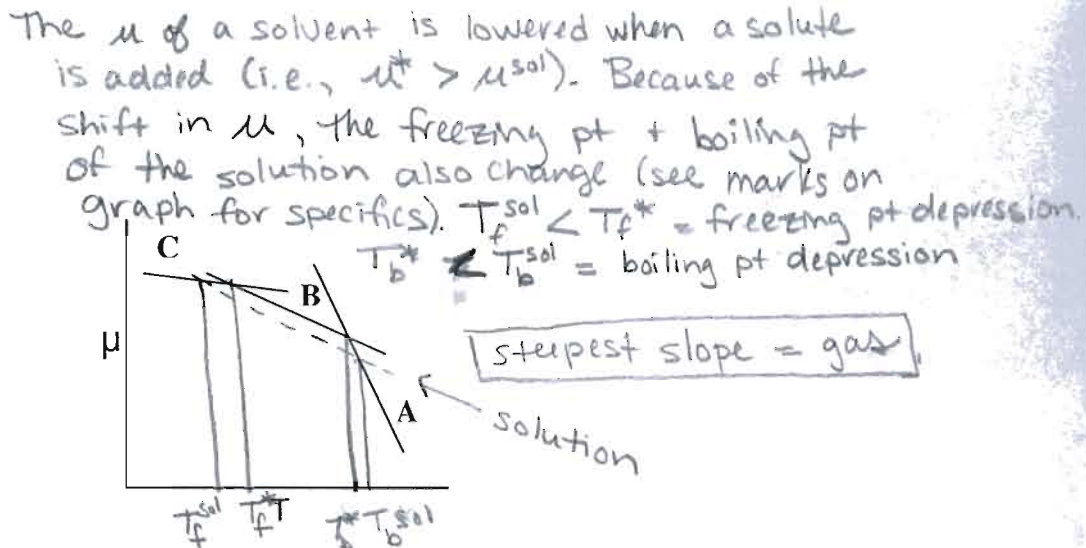 The μ of a solvent is lowered when a solute
is added (i.e., μ* > μsol). Because of the
shift in μ, the freezing pt + boiling pt
of the solution also change (see marks on
graph for specifics). Tfsol < Tf* = freezing pt depression.
Tb* < Tbsol = boiling pt depression
C
B
μ
steepest slope = gas
A
solution
Tfsol Tf* T Tb* Tbsol